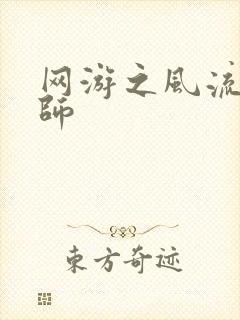 网游之風流
師
东方奇迹